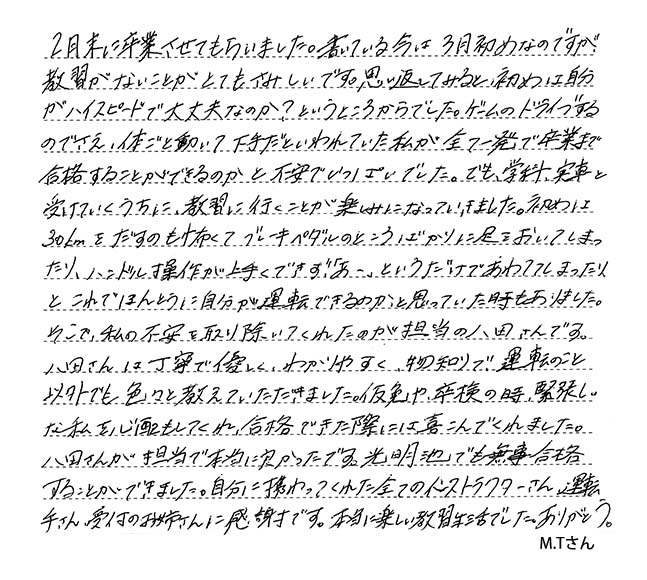 2月末に卒業させてもらいました。書いている今は3月初めなのですが
教習がないことがとてもさみしいです。思い返してみると、初めは自分
がハイスピードで大丈夫なのか？というところからでした。ゲームのドライブする
のでさえ、体ごと動いて下手だといわれていた私が全て一発で卒業まで
合格することができるのかと不安でいっぱいでした。でも、学科、実車と
受けていくうちに、教習に行くことが楽しみになっていきました。初めは
30kmをだすのも怖くてブレーキペダルのところばかりに足をおいてしまっ
たり、ハンドル操作が上手くできず「あー」というだけであわててしまったり
と、これでほんとうに自分が運転できるのかと思っていた時もありました。
そこで、私の不安を取り除いてくれたのが担当の八田さんです。
八田さんは丁寧で優しく、わかりやすく、物知りで運転のこと
以外でも色々と教えていただきました。仮免や、卒検の時、緊張し
な私を心配もしてくれ、合格できた際には喜こんでくれました。
八田さんが担当で本当に良かったです。光明池でも無事合格
することができました。自分に携わってくれた全てのインストラクターさん、運転
手さん、受付のお姉さんに感謝です。本当に楽しい教習生活でした。ありがとう。
M.Tさん